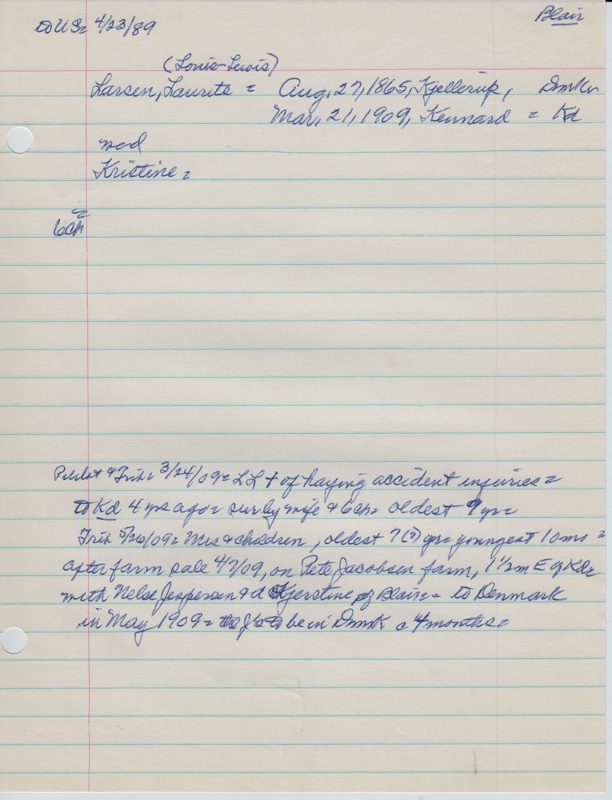 Blair
to US= 4/23/89
(Louis-Lewis)
Larsen, Laurits = Aug. 27, 1865, Kjellerup, Dnmk
Mar. 21, 1909, Kennard = Kd
wed
Kristine =
6ch =
Pilot & Trib= 3/24/09= LL + of haying accident injuries=
to Kd 4 yrs ago= sur by wife & 6ch= oldest 9 yr=
Trib 5/26/09= Mrs & children, oldest 7(?) yr= youngest 10 mo=
after farm sale 4/7/09, on Pete Jacobsen farm, 1 1/2m E of Kd=
with Nels Jespersen & d Kjerstine of Blair= to Denmark
in May 1909= the J's to be in Dnmk a 4 months=